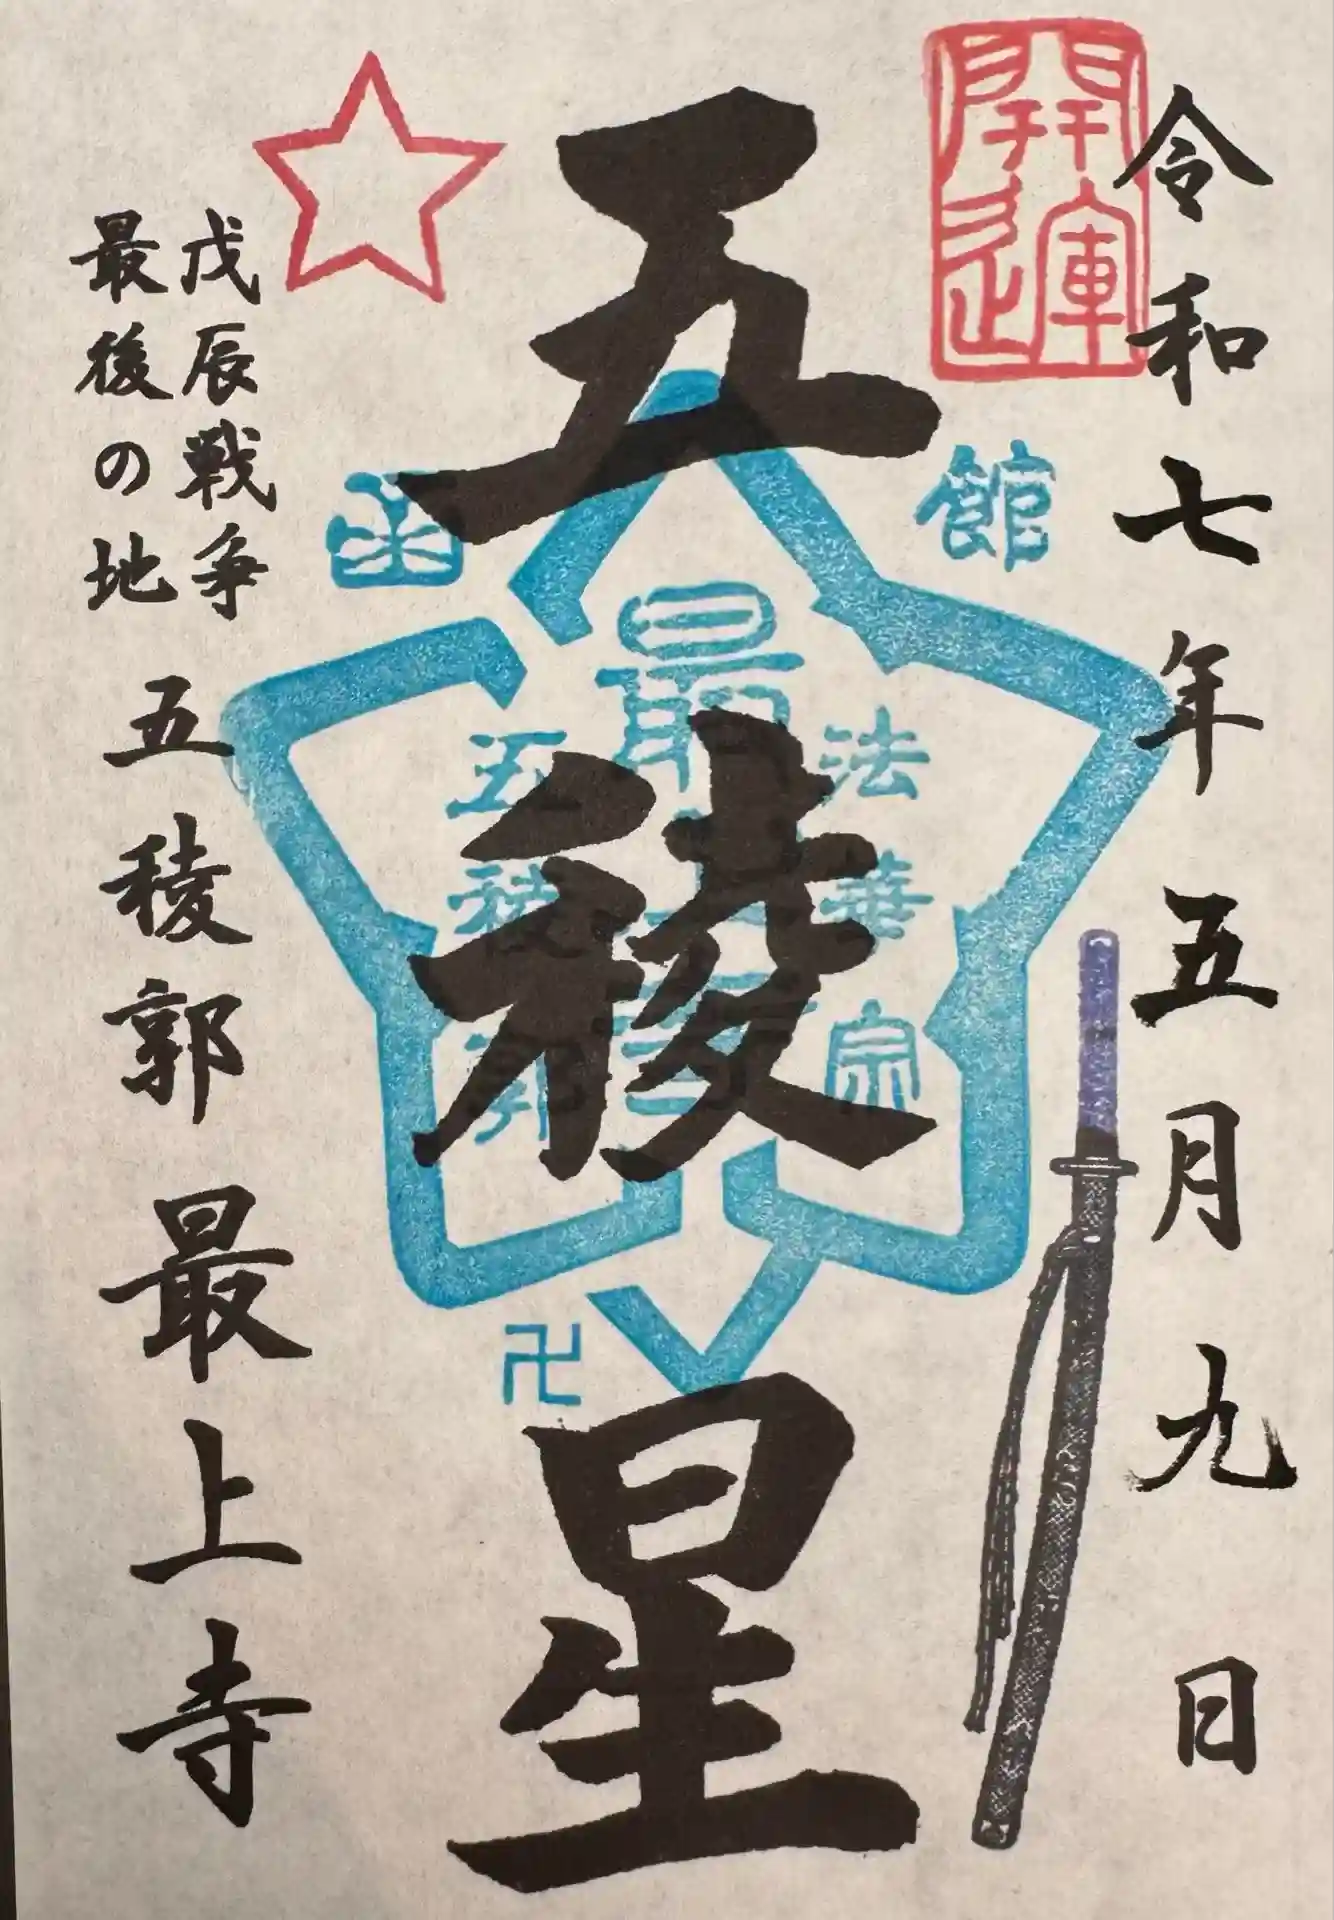 令和七年五月九日
開運
五稜星
函館
法華宗
最上寺
五稜郭
卍
戊辰戦争
最後の地
五稜郭 最上寺